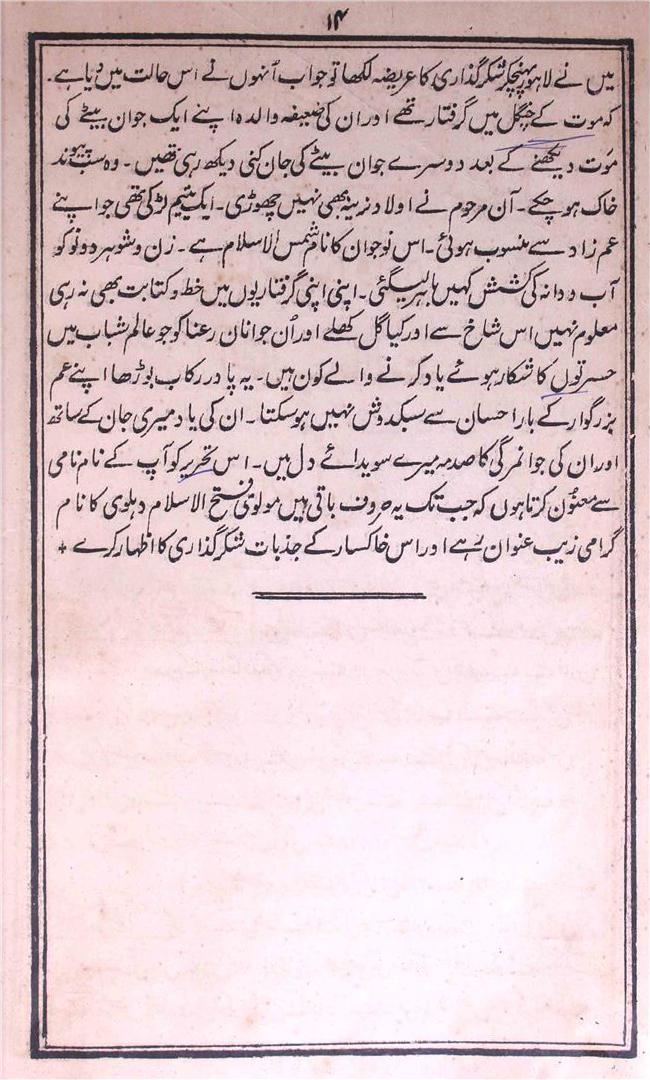 ۱۴
میں نے لاہور پہنچکر شکر گذاری کا عریضہ لکھا تو جواب اُنہوں نے اس حالت میں دیا ہے۔
کہ موت کے چنگل میں گرفتار تھے اور ان کی ضعیفہ والدہ اپنے ایک جوان بیٹے کی
موت دیکھنے کے بعد دوسرے جوان بیٹے کی جان کنی دیکھ رہی تھیں۔ وہ سب پیوند
خاک ہو چکے۔ آن مرحوم نے اولاد نرینہ بھی نہیں چھوڑی۔ ایک یتیم لڑکی تھی جو اپنے
عم زاد سے منسوب ہوئی۔ اس نوجوان کا نام شمس الاسلام ہے۔ زن و شوہر دونو کو
آب و دانہ کی کشش کہیں باہر لیگئی۔ اپنی اپنی گرفتاریوں میں خط و کتابت بھی نہ رہی
معلوم نہیں اس شاخ سے اور کیا گل کھلے اور اُن جوانان رعنا کو جو عالم شباب میں
حسرتوں کا شکار ہوئے یاد کرنے والے کون ہیں۔ یہ پا در رکاب بوڑھا اپنے عم
بزرگوار کے بار احسان سے سبکدوش نہیں ہو سکتا۔ ان کی یاد میری جان کے ساتھ
اور ان کی جوانمرگی کا صدمہ میرے سویدائے دل میں۔ اس تحریر کو آپ کے نام نامی
سے معنون کرتا ہوں کہ جب تک یہ حروف باقی ہیں مولوی فتح الاسلام دہلوی کا نام
گرامی زیب عنوان رہے اور اس خاکسار کے جذبات شکر گذاری کا اظہار کرے +